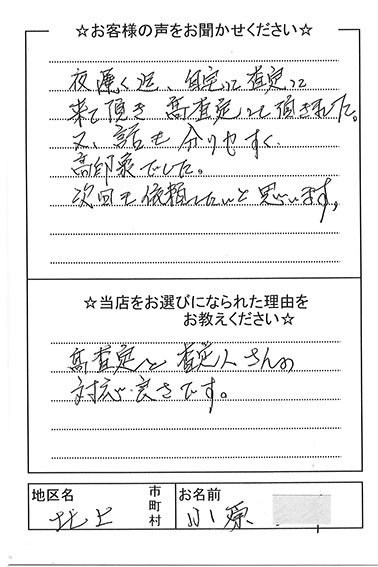 ☆お客様の声をお聞かせください☆
夜遅く迄、自宅に査定に
来て頂き高査定して頂きました。
又、話も分りやすく、
高印象でした。
次回も依頼したいと思います。
☆当店をお選びになられた理由を
お教えください☆
高査定と査定人さんの
対応の良さです。
地区名 北上 市町村
お名前 小原